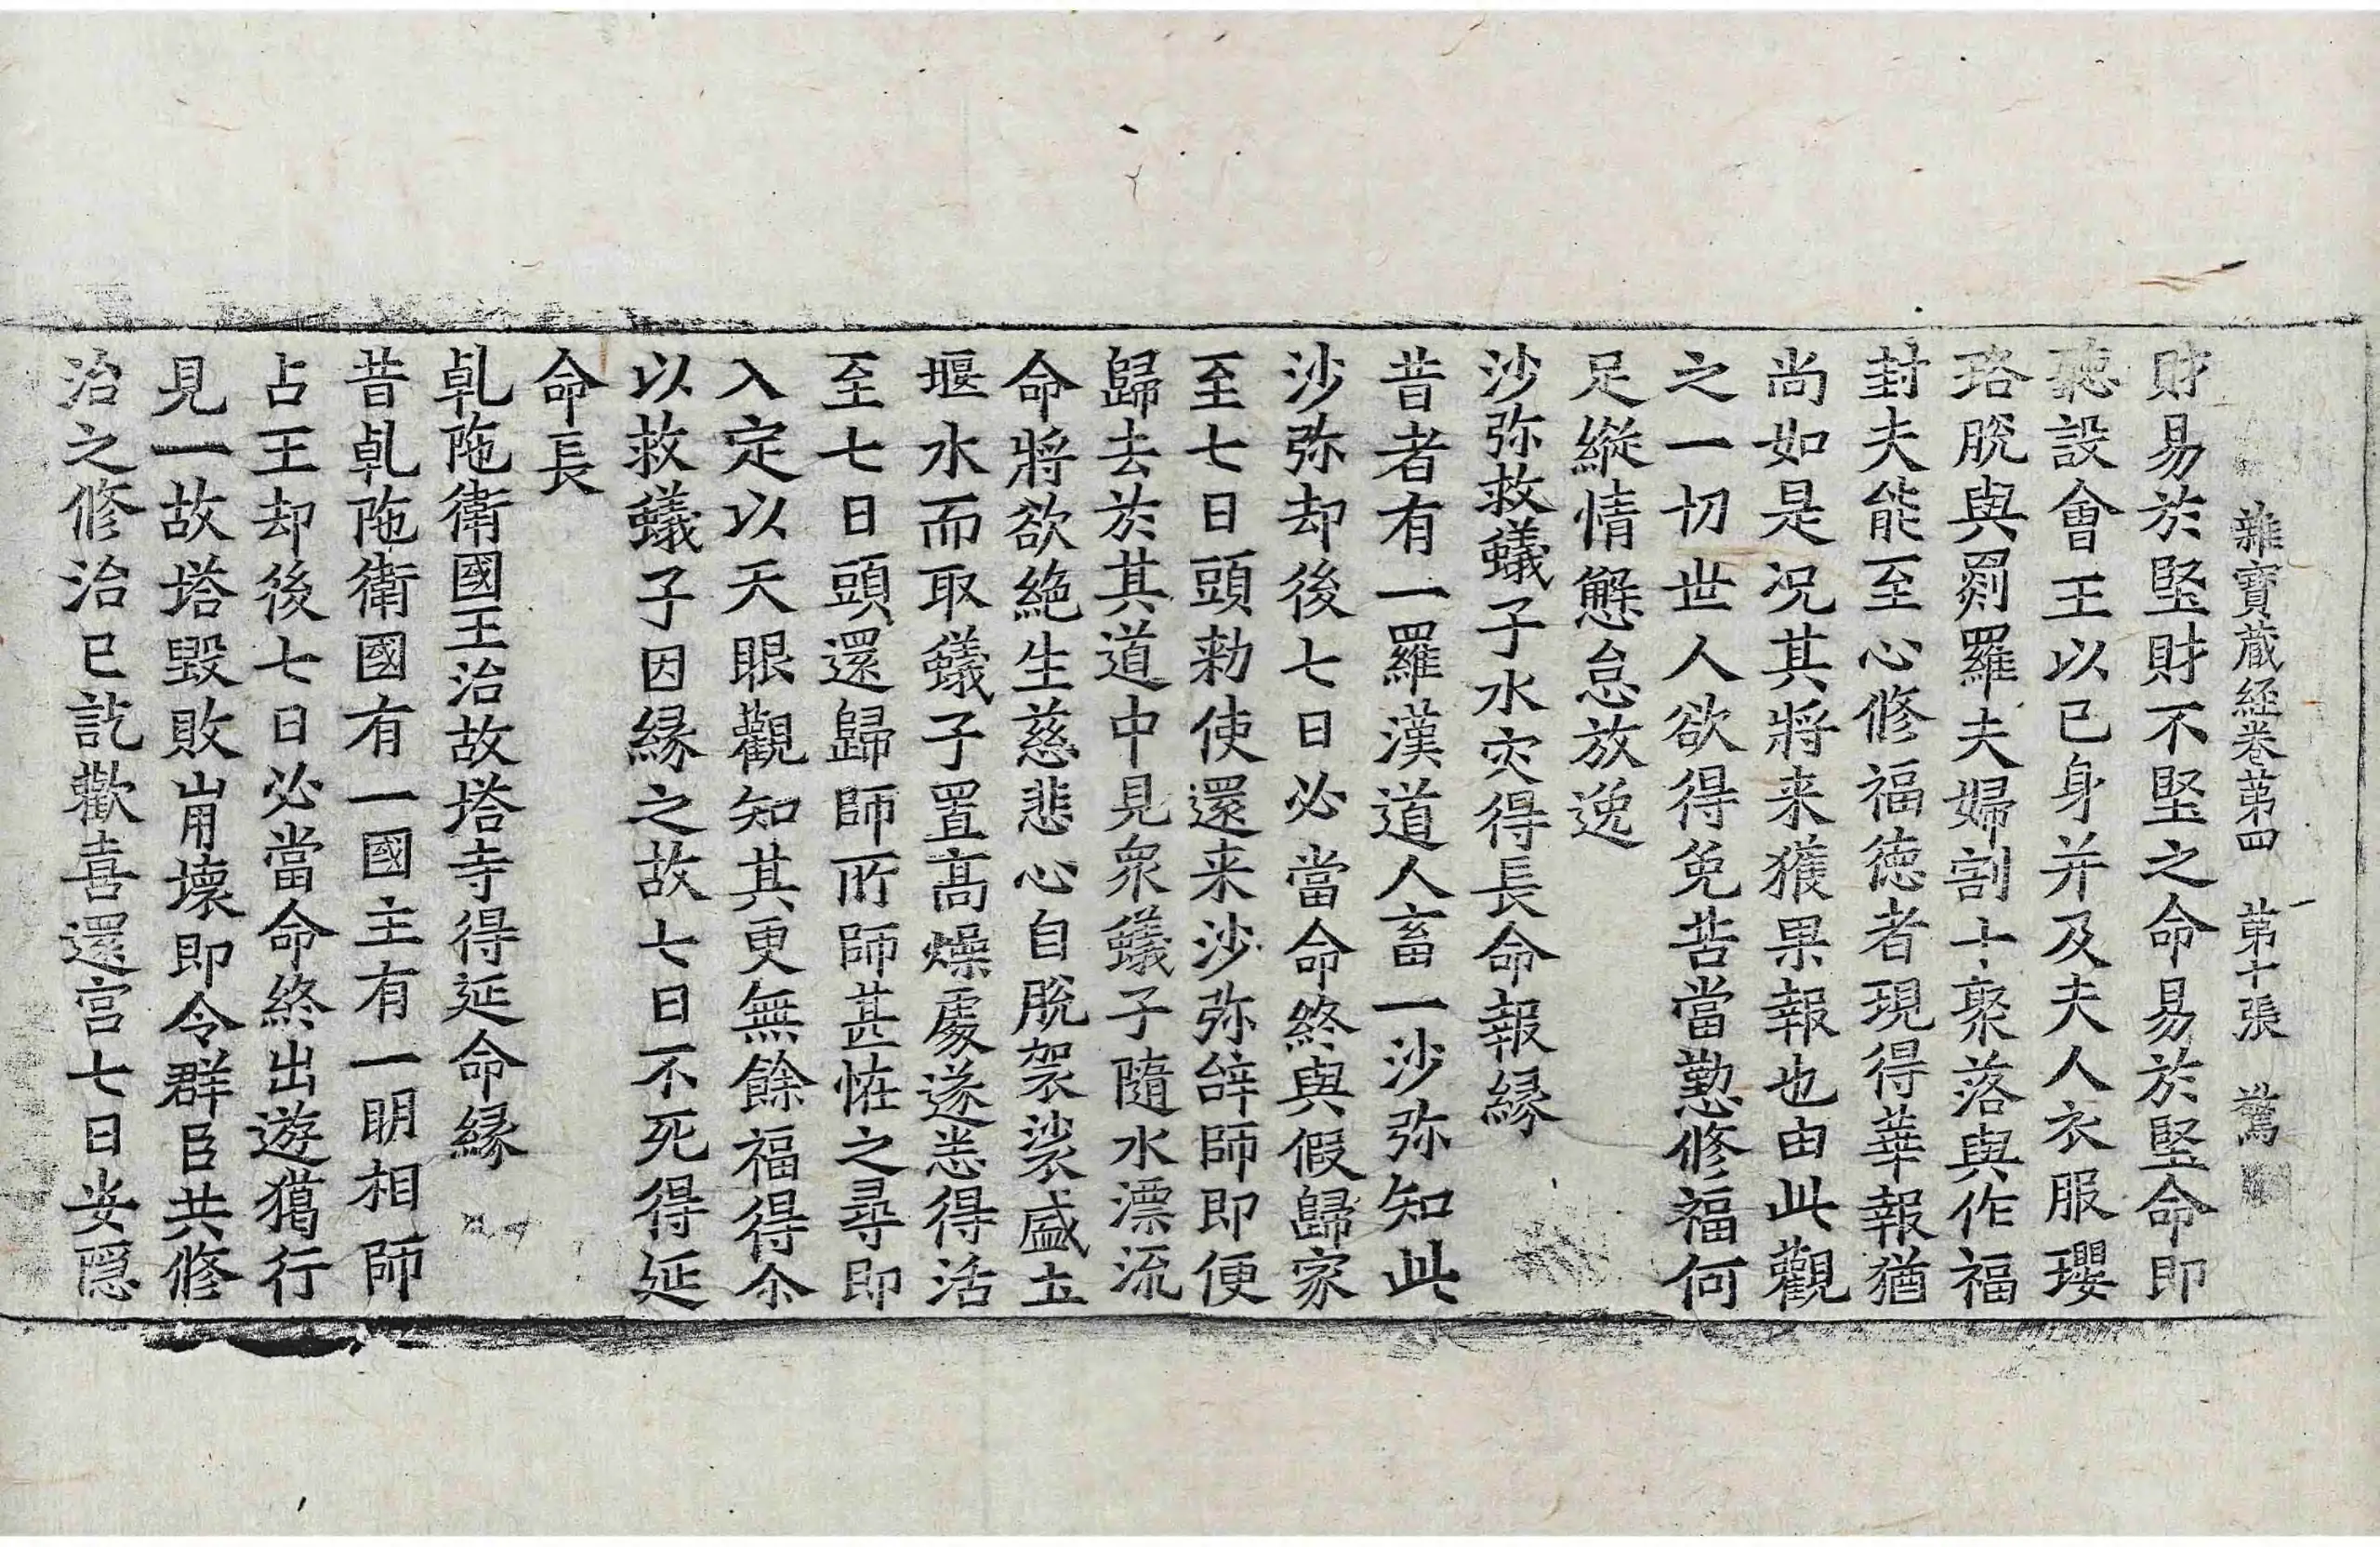 雜寶藏經卷第四　第十張　驚
財易於堅財不堅之命易於堅命即
聽設會王以己身并及夫人衣服瓔
珞脫與罽羅夫婦割十聚落與作福
封夫能至心修福德者現得華報猶
尚如是况其將来獲果報也由此觀
之一切世人欲得免苦當勤修福何
足縱情懈怠放逸
沙弥救蟻子水灾得長命報縁
昔者有一羅漢道人畜一沙弥知此
沙弥却後七日必當命終與假歸家
至七日頭勑使還来沙弥辤師即便
歸去於其道中見衆蟻子隨水漂流
命將欲絶生慈悲心自脫袈裟盛土
堰水而取蟻子置髙燥處遂悉得活
至七日頭還歸師所師甚恠之尋即
入定以天眼觀知其更無餘福得尒
以救蟻子因縁之故七日不死得延
命長
乹陁衛國王治故塔寺得延命縁
昔乹陁衛國有一國主有一明相師
占王却後七日必當命終出遊獵行
見一故塔毀敗崩壞即令群臣共修
治之修治已訖歡喜還宫七日安隱